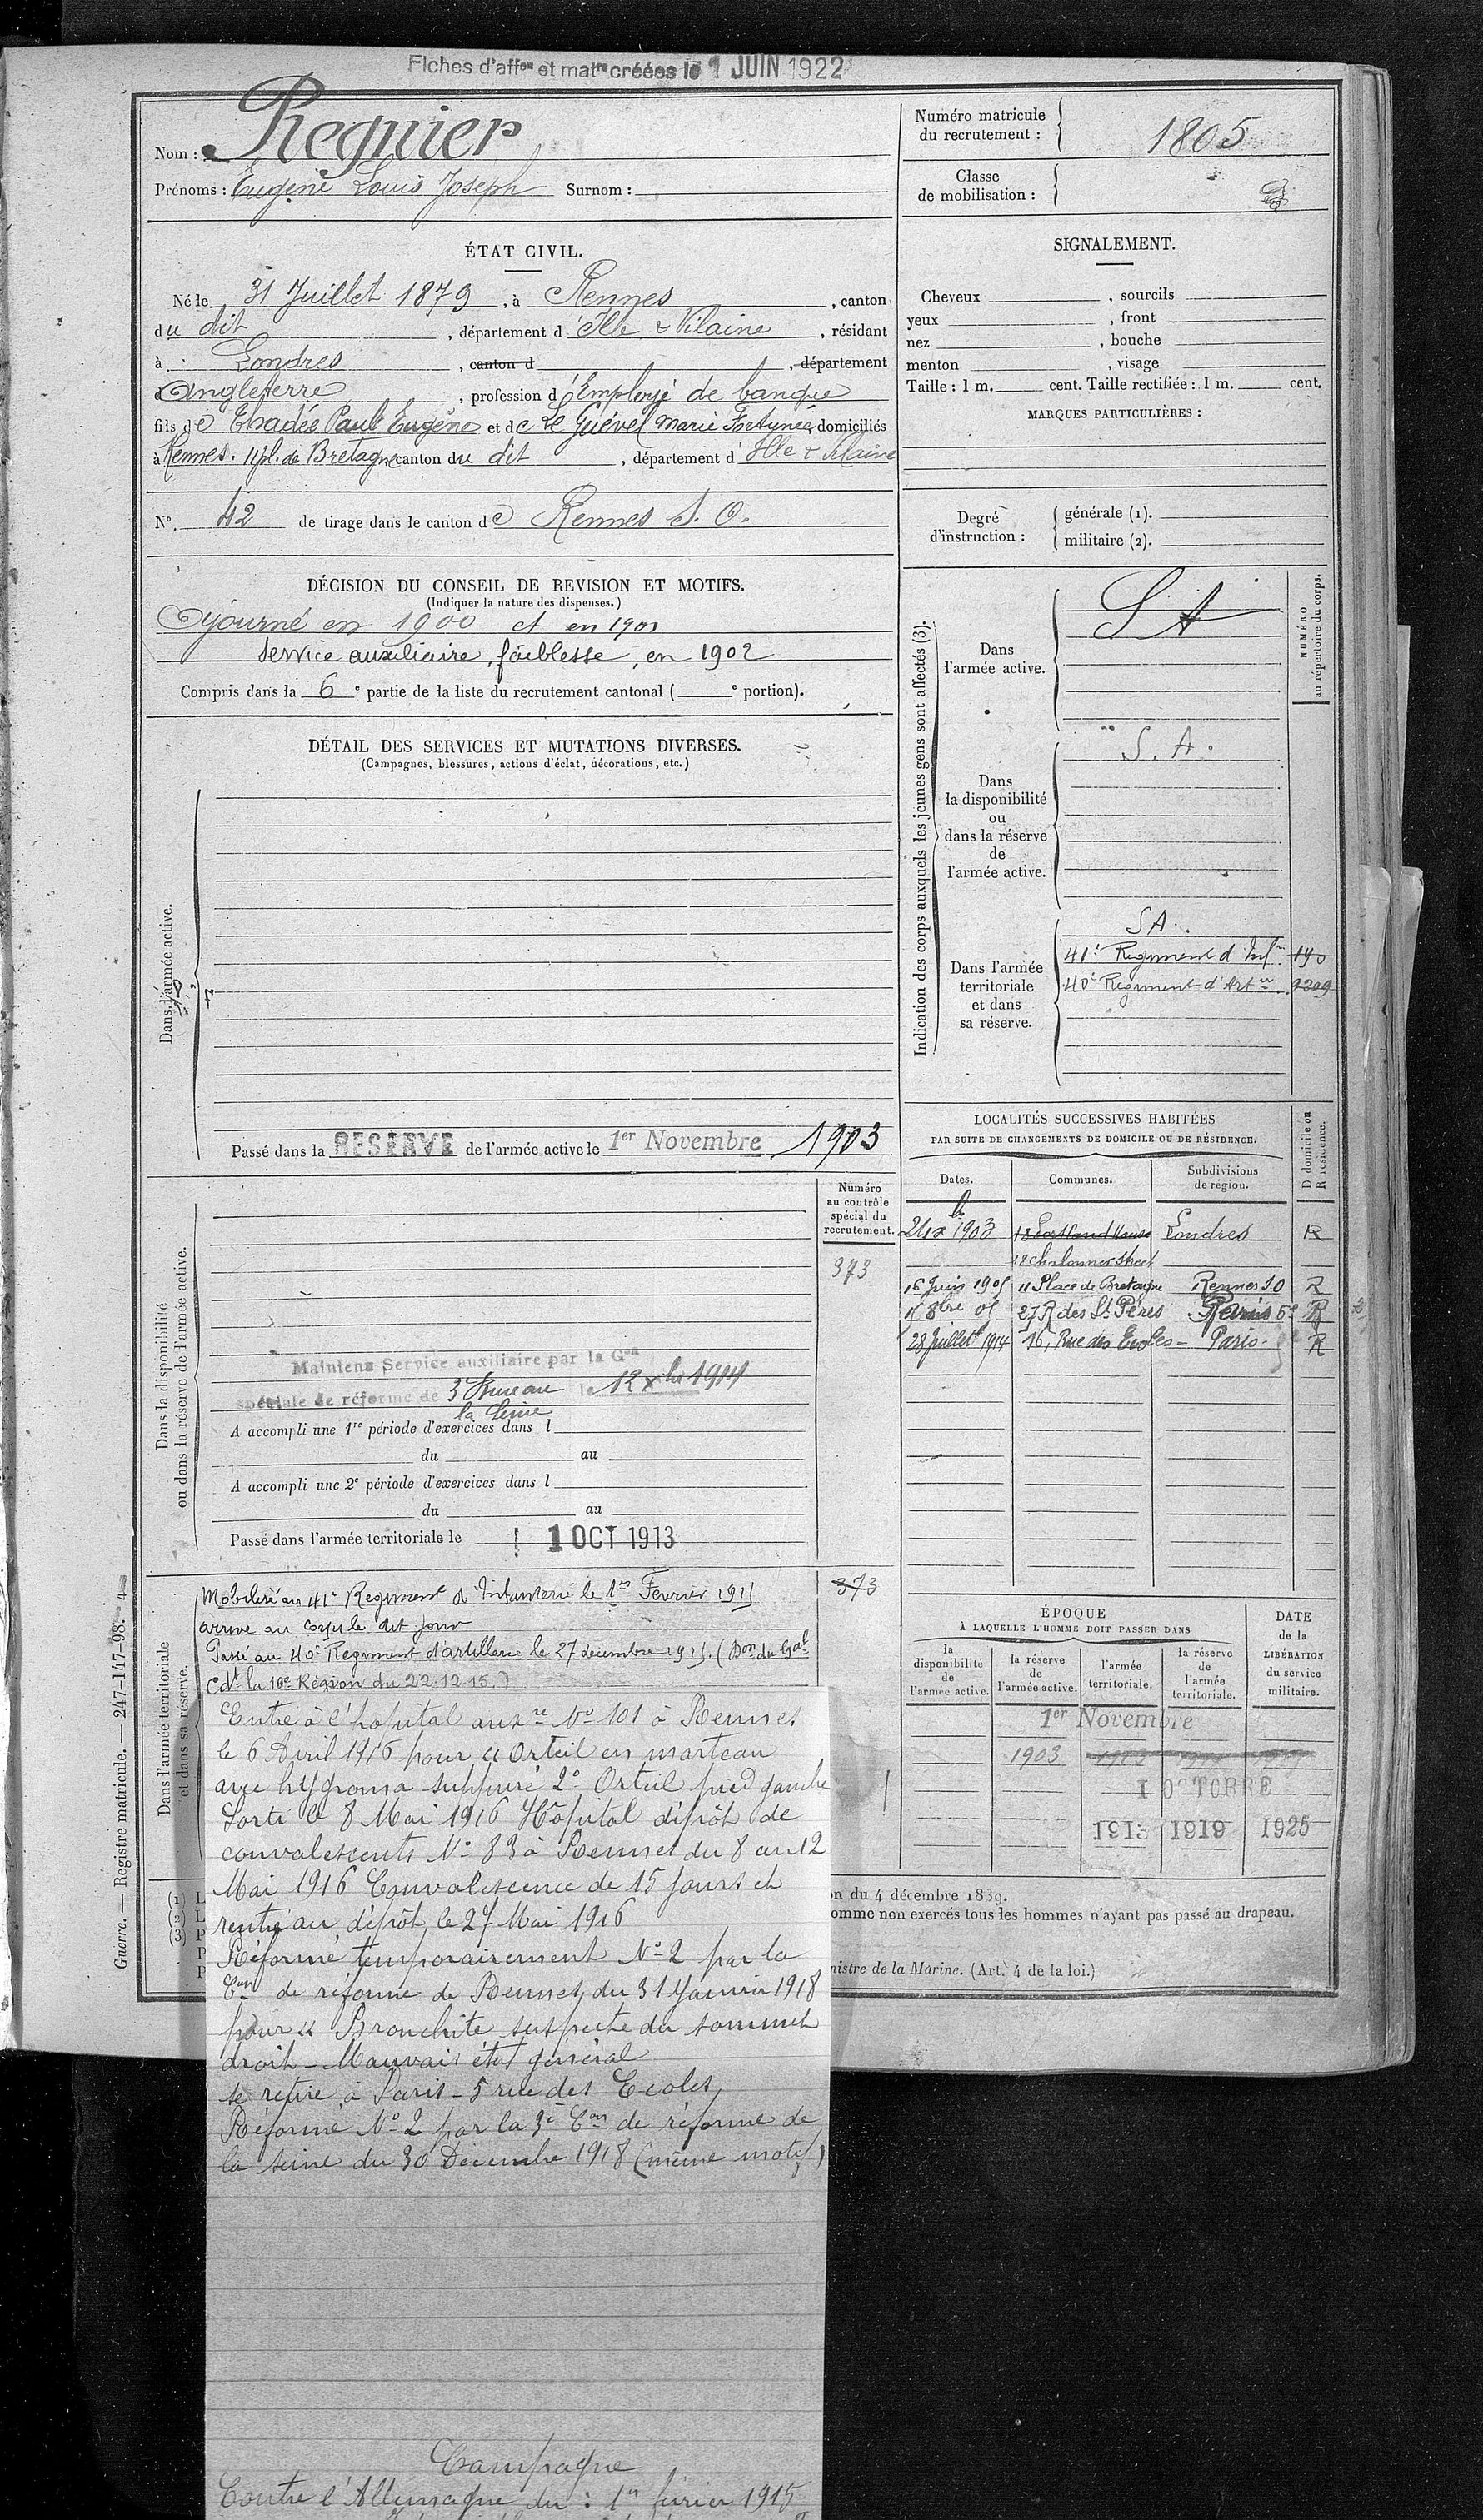 Fiches d'affon et matre créées le 1 JUIN 1922
Nom : Regnier
Prénoms : Eugène Louis Joseph Surnom :
ÉTAT CIVIL.
Né le 31 Juillet 1879, à Rennes, canton
du dit, département d'Ille & Vilaine, résidant
à Londres, canton d , département
Angleterre, profession d'Employé de banque
fils de Thadée Paul Eugène et de Le Guével Marie Fortunée, domiciliés
à Rennes. 11 pl. de Bretagne canton du dit, département d'Ille & Vilaine
N°. 42 de tirage dans le canton de Rennes S. O.
DÉCISION DU CONSEIL DE REVISION ET MOTIFS.
(Indiquer la nature des dispenses.)
Ajourné en 1900 et en 1901
Service auxiliaire, faiblesse, en 1902
Compris dans la 6e partie de la liste du recrutement cantonal ( e portion).
DÉTAIL DES SERVICES ET MUTATIONS DIVERSES.
(Campagnes, blessures, actions d'éclat, décorations, etc.)
Dans l'armée active.
Passé dans la RESERVE de l'armée active le 1er Novembre 1903
Dans la disponibilité
ou dans la réserve de l'armée active.
Numéro
au contrôle
spécial du
recrutement.
373
Maintenu Service auxiliaire par la Con
spéciale de réforme de 3e Bureau le 12 xbre 1914
la Seine
A accompli une 1re période d'exercices dans l
du au
A accompli une 2e période d'exercices dans l
du au
Passé dans l'armée territoriale le 1 OCT 1913
Dans l'armée territoriale
et dans sa réserve.
373
Mobilisé au 41e Régiment d'Infanterie le 1er Février 1915
arrivé au corps le dit jour
Passé au 40e Régiment d'artillerie le 27 décembre 1915. (Don du Gal
Cdt la 10e Région du 22.12.15.)
Entré à l'hôpital auxre No 101 à Rennes
le 6 Avril 1916 pour " Orteil en marteau
avec hygroma suppuré 2e Orteil pied gauche
Sorti le 8 Mai 1916 Hôpital dépôt de
convalescents No 83 à Rennes du 8 au 12
Mai 1916 Convalescence de 15 jours et
rentré au dépôt le 27 Mai 1916
Réformé temporairement No 2 par la
Con de réforme de Rennes du 31 Janvier 1918
pour " Bronchite suspecte du sommet
droit - Mauvais état général
se retire à Paris - 5 rue des Ecoles
Réformé No 2 par la 3e Con de réforme de
la Seine du 30 Décembre 1918 (même motif)
Campagne
Contre l'Allemagne du : 1er février 1915
Guerre. — Registre matricule. — 247-147-98.
Numéro matricule
du recrutement : 1805
Classe
de mobilisation :
SIGNALEMENT.
Cheveux , sourcils
yeux , front
nez , bouche
menton , visage
Taille : 1 m. cent. Taille rectifiée : 1 m. cent.
MARQUES PARTICULIÈRES :
Degré
d'instruction :
générale (1).
militaire (2).
Indication des corps auxquels les jeunes gens sont affectés (3).
NUMÉRO
au répertoire du corps.
Dans
l'armée active.
S A
Dans
la disponibilité
ou
dans la réserve
de
l'armée active.
S. A.
Dans l'armée
territoriale
et dans
sa réserve.
SA.
41e Régiment d'Infie 190
40e Régiment d'Artie 9209
LOCALITÉS SUCCESSIVES HABITÉES
PAR SUITE DE CHANGEMENTS DE DOMICILE OU DE RÉSIDENCE.
Dates. Communes. Subdivisions
de région. D domicile ou
R résidence.
1903 Londres R
16 Juin 1905 11 Place de Bretagne Rennes S.O R
8bre 05 27 R des Sts Pères Paris R
28 Juillet 1914 16, Rue des Ecoles - Paris - R
ÉPOQUE
À LAQUELLE L'HOMME DOIT PASSER DANS
la
disponibilité
de
l'armée active.
la réserve
de
l'armée active.
l'armée
territoriale.
la réserve
de
l'armée
territoriale.
DATE
de la
LIBÉRATION
du service
militaire.
1er Novembre
1903
1 OCTOBRE
1913 1919 1925
on du 4 décembre 1889.
omme non exercés tous les hommes n'ayant pas passé au drapeau.
nistre de la Marine. (Art. 4 de la loi.)